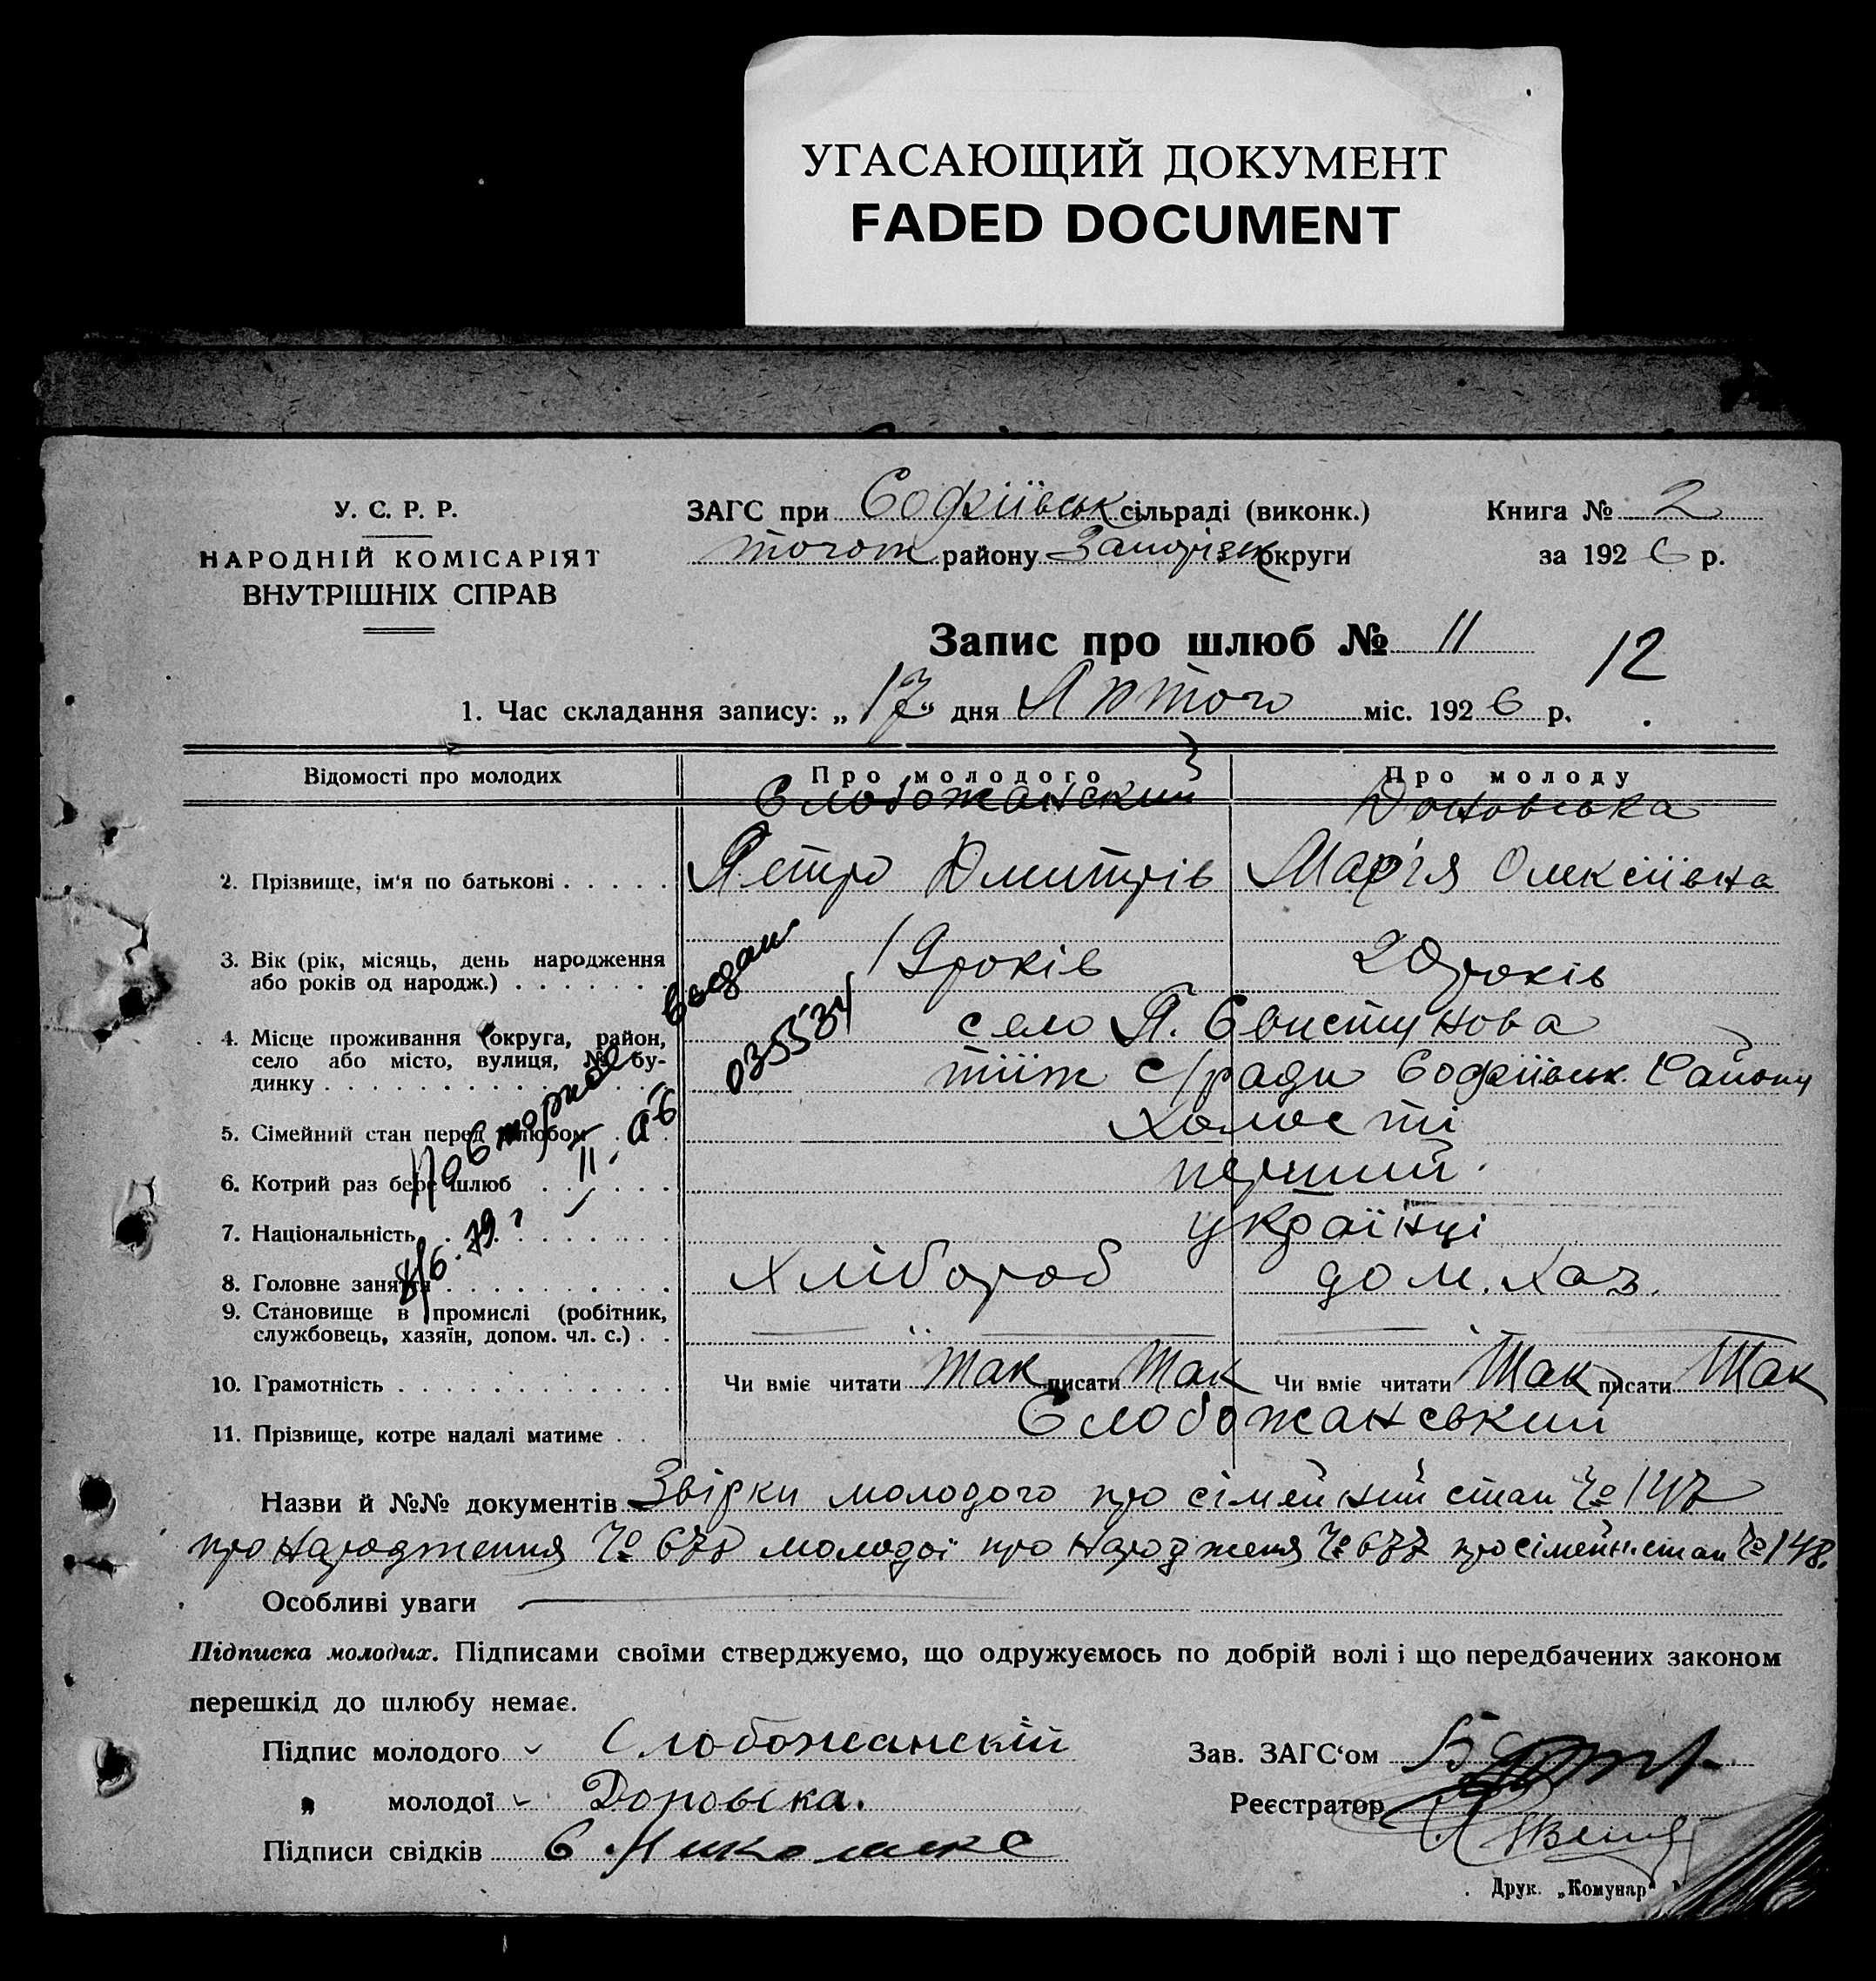 УГАСАЮЩИЙ ДОКУМЕНТ
FADED DOCUMENT
У. С. Р. Р.
НАРОДНІЙ КОМІСАРІЯТ
ВНУТРІШНІХ СПРАВ
ЗАГС при Софіівськ сільраді (виконк.)
того ж району Запорізьк округи
Книга № 2
за 1926 р.
Запис про шлюб № 11
12
1. Час складання запису: „17“ дня Лютого міс. 1926 р.
Відомості про молодих
Про молодого
Про молоду
Слобожанский
2. Прізвище, ім'я по батькові . . . . . Петро Дмитрів Мар'я Олексіівна
3. Вік (рік, місяць, день народження
або років од народж.) . . . . . . . 19 років 20 років
4. Місце проживання (округа, район,
село або місто, вулиця, № бу-
динку . . . . . . . . . . . . . .
село П. Свистунова
тіїж с/ради Софіівськ. Району
5. Сімейний стан перед шлюбом . . . Холості
6. Котрий раз бере шлюб . . . . . . перший
7. Національність . . . . . . . . . українці
8. Головне заняття . . . . . . . . . Хлібороб дом. хаз.
9. Становище в промислі (робітник,
службовець, хазяїн, допом. чл. с.) . .
10. Грамотність . . . . . . . . . . . Чи вміє читати Так писати Так Чи вміє читати Так писати Так
11. Прізвище, котре надалі матиме . . Слобожанський
Повторное
II-АБ
видан
035534
8/6.79 г
Назви й №№ документів Звірки молодого про сімейний стан № 147
про народження № 678 молодоі про народженя № 677 про сімейн. стан № 148.
Особливі уваги
Підписка молодих. Підписами своїми стверджуємо, що одружуємось по добрій волі і що передбачених законом
перешкід до шлюбу немає.
Підпис молодого Слобожанскій
„ молодої
Підписи свідків
Зав. ЗАГС'ом
Реєстратор
Друк. „Комунар“